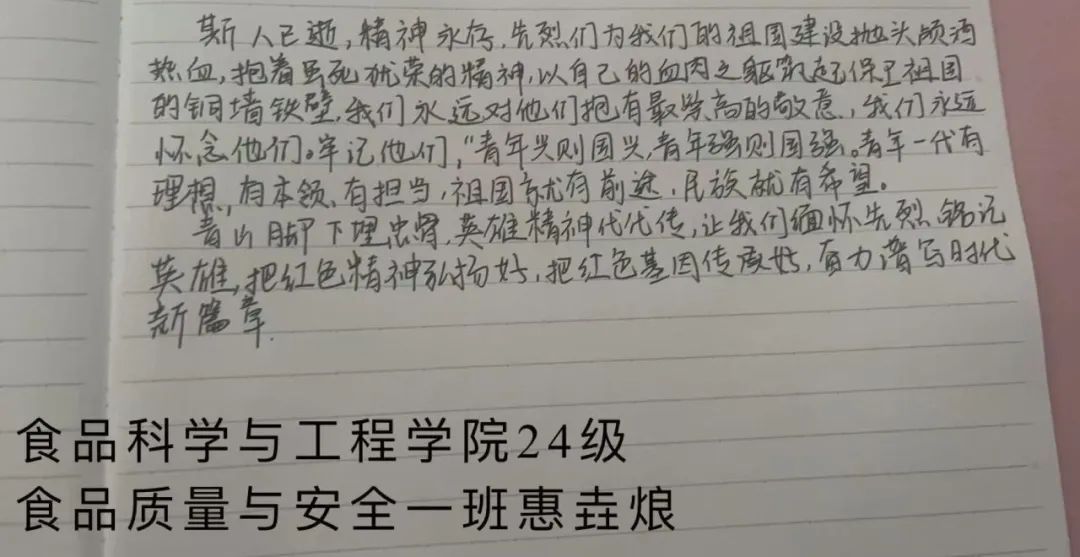 斯人已逝,精神永存,先烈们为我们的祖国建设抛头颅洒
热血,抱着虽死犹荣的精神,以自己的血肉之躯筑起保卫祖国
的铜墙铁壁,我们永远对他们抱有最崇高的敬意,我们永远
怀念他们。牢记他们,“青年兴则国兴,青年强则国强。青年一代有
理想,有本领、有担当,祖国就有前途,民族就有希望。
青山脚下埋忠骨,英雄精神代代传,让我们缅怀先烈,铭记
英雄,把红色精神弘扬好,把红色基因传承好,奋力谱写时代
新篇章.
食品科学与工程学院24级
食品质量与安全一班惠垚烺